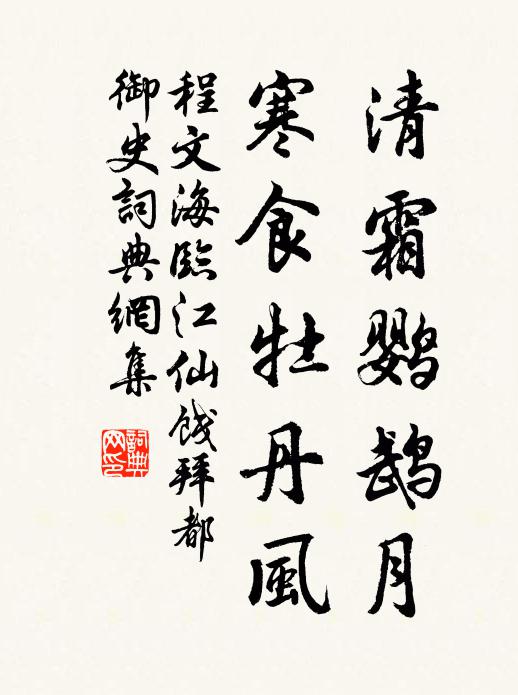 清霜鹦鹉月
寒食牡丹風
程文海臨江仙餞拜都
御史詞典網集
詞典
网印